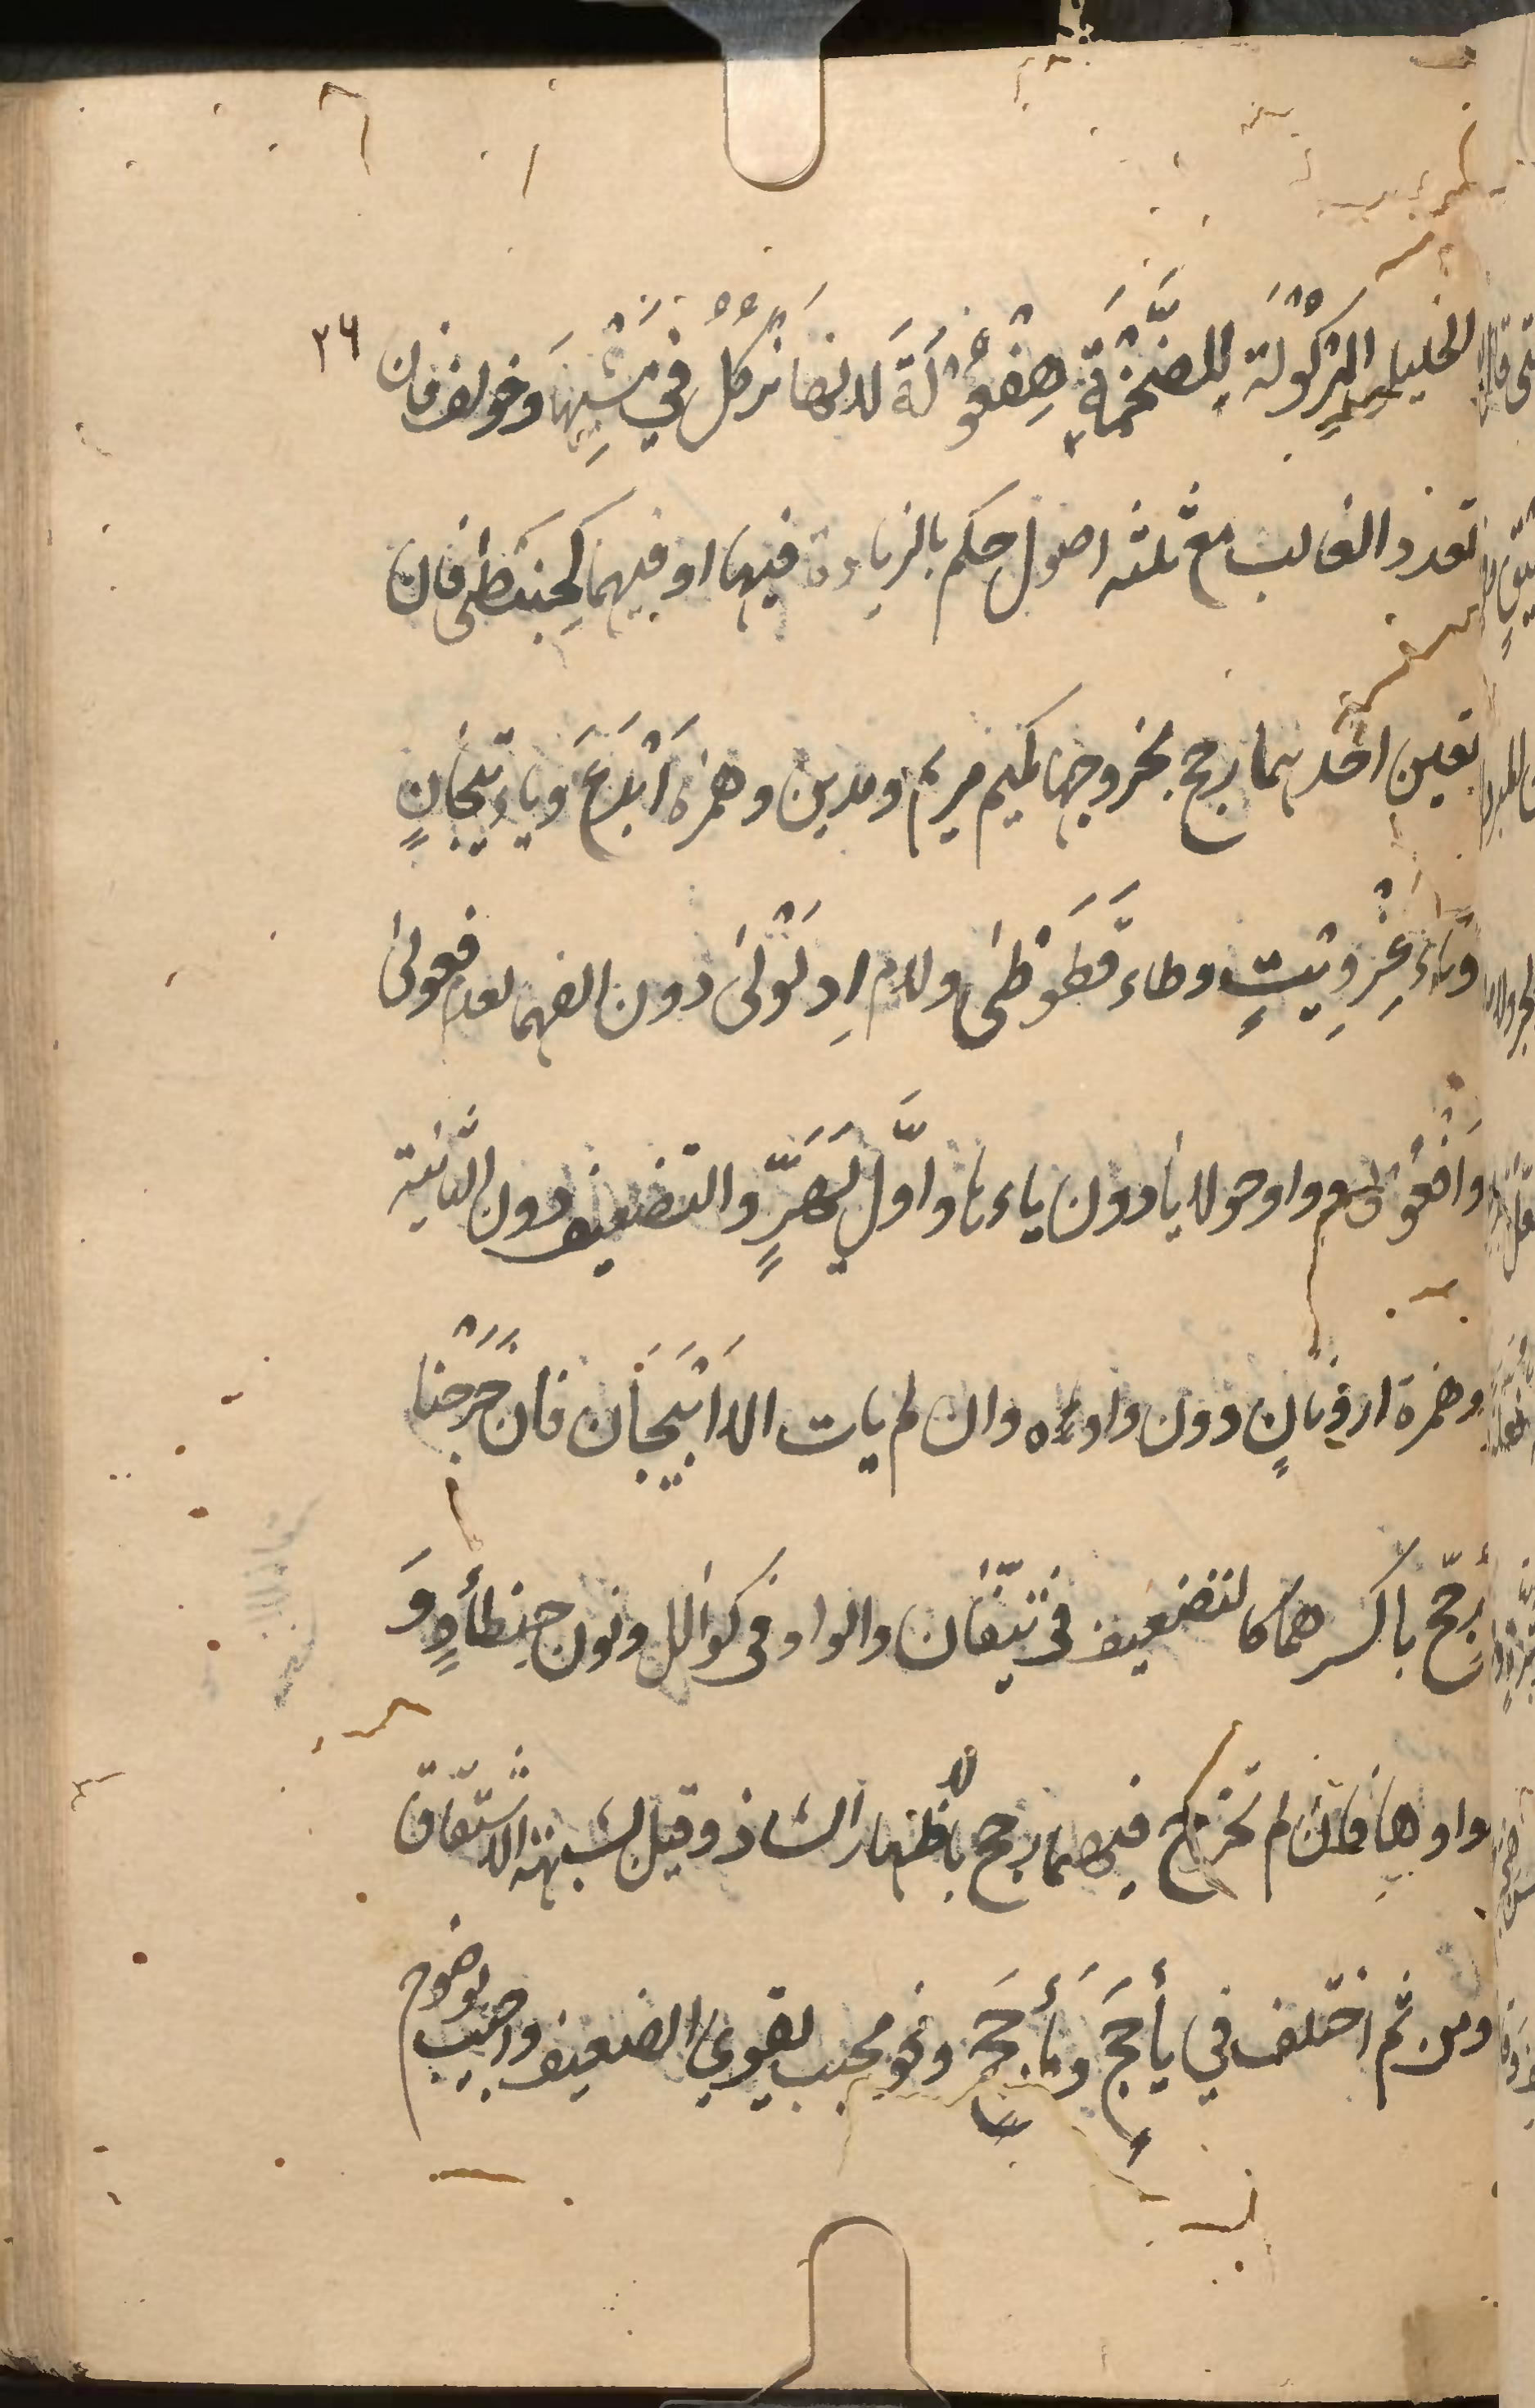 ٣٦
الخليل الهِرْكَوْلَة لِلضَّخْمَةِ هِفْعَوْلَةَ لانها تَرْكُلُ في مَشْيِهَا وخولف فان
تعدد الغالب مع ثلثه اصول حكم بالزيادة فيها او فيهما كَحَبَنْطَى فان
تعين احدهما رجح بخروجها كميم مريم ومدين وهمزة اَيْدَعَ وياء تَيَّحَانٍ
وتاء عِزْوِيْتٍ وطاء قَطَوْطَى ولام اِدْلَوْلَى دون الفهما لعدم فعولى
وَافْعَوْلى وواو حولايا دون ياءها واوّل يَهْيَرٍّ والتضعيف دون الثانية
وهمزة ارونانٍ دون واوه وان لم يات الا اَنْبَجَان فان خَرَجْتَا
رُجِّحَ باكثرهما كالتضعيف في تئفّان والواو في كوالل ونون حِنْطَأْوٍ وَ
واوها فان لم تخرج فيهما رجح بالاظهار الشاذ وقيل بشبهة الاشتقاق
ومن ثم اختلف في يأْجَجَ ومَأْجَجَ ونحو محبب يقوي الضعيف واجيب بوضوح